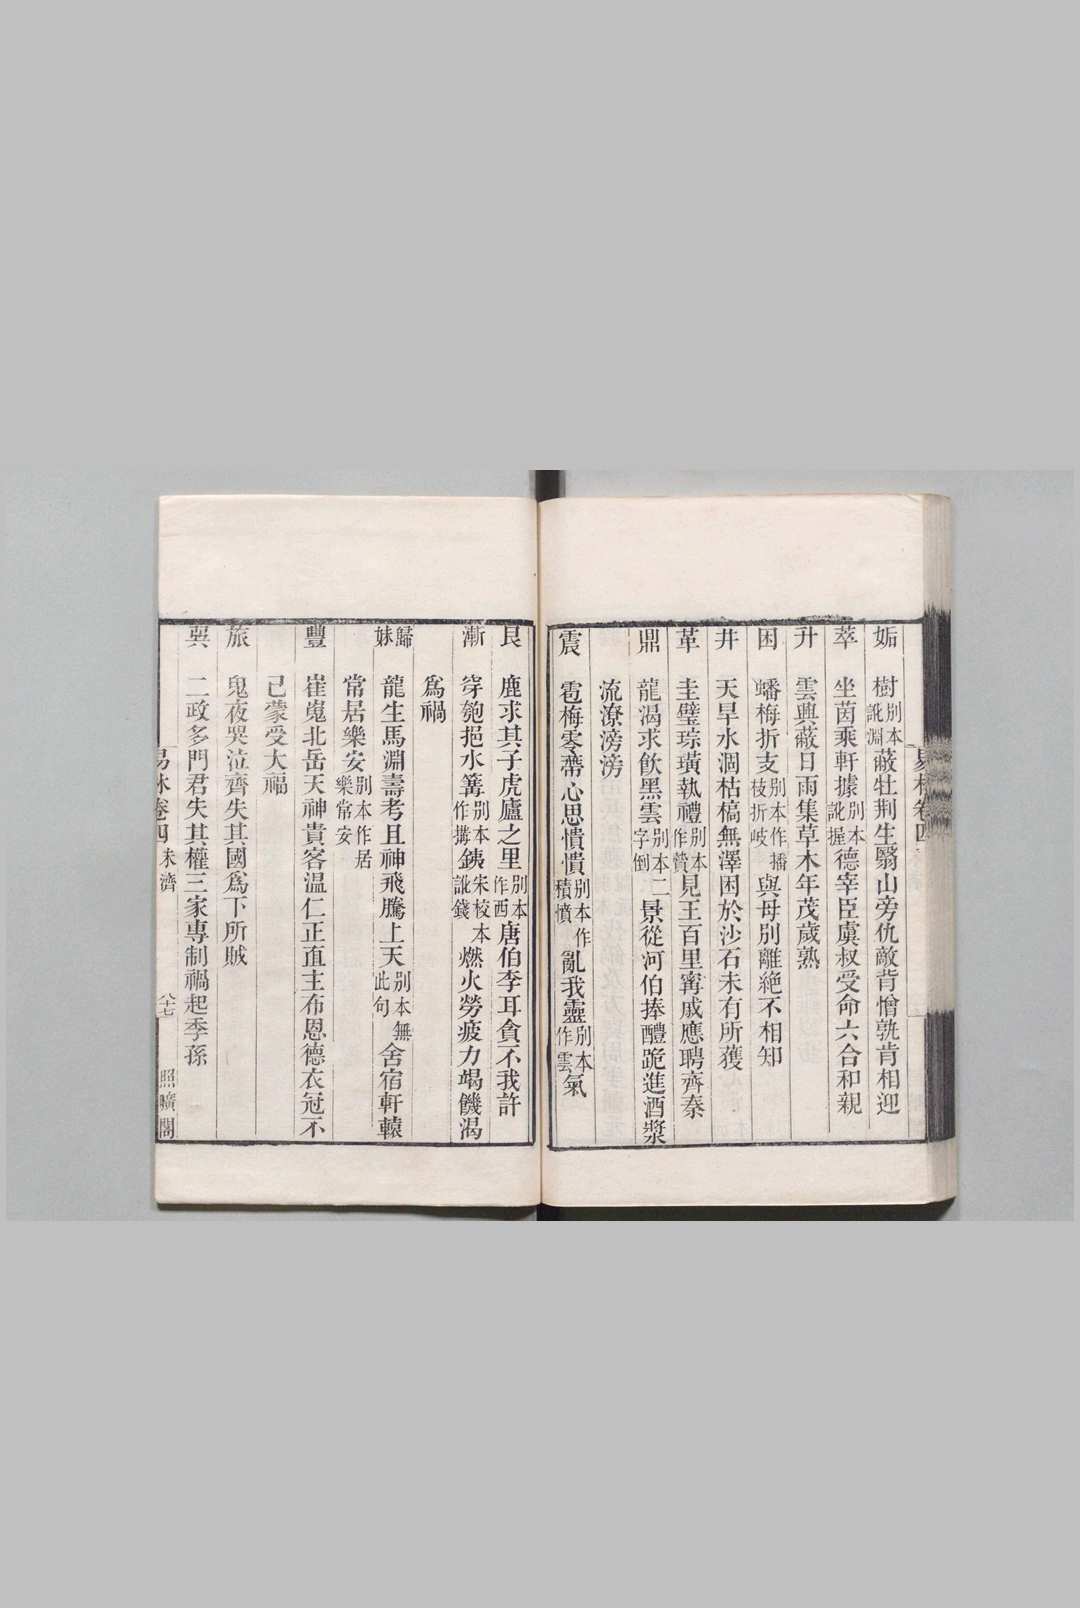 姤　樹別本訛淵蔽牡荆生翳山旁仇敵背憎孰肯相迎
萃　坐茵乘軒據別本訛握德宰臣虞叔受命六合和親
升　雲興蔽日雨集草木年茂歲熟
困　蟠梅折支別本作播枝折岐與母別離絶不相知
井　天旱水涸枯槁無澤困於沙石未有所獲
革　圭璧琮璜執禮別本作贄見王百里甯戚應聘齊秦
鼎　龍渴求飲黑雲別本二字倒景從河伯捧醴跪進酒漿
流潦滂滂
震　雹梅零蔕心思憒憒別本作積憤亂我靈別本作雲氣
艮　鹿求其子虎廬之里別本作西唐伯李耳貪不我許
漸　穿匏挹水篝別本作搆銕宋校本訛錢燃火勞疲力竭饑渴
爲禍
歸妹　龍生馬淵壽考且神飛騰上天別本無此句舍宿軒轅
常居樂安別本作居樂常安
豐　崔嵬北岳天神貴客温仁正直主布恩德衣冠不
已蒙受大福
旅　鬼夜哭泣齊失其國爲下所賊
巽　二政多門君失其權三家專制禍起季孫
易林卷四　未濟　八十七　照曠閣